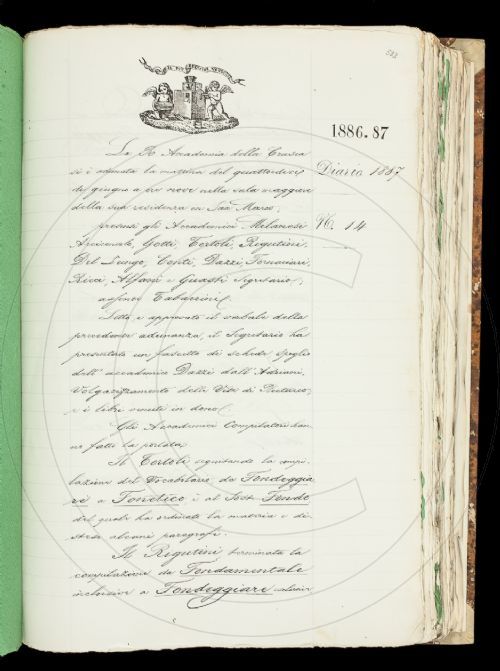 583
IL PIÙ BEL FIOR NE COGLIE
1886.87
Diario 1887
N. 14
La R. Accademia della Crusca
si è adunata la mattina del quattordici
di giugno a ore nove nella sala maggiore
della sua residenza in San Marco;
presenti gli Accademici Milanesi
Arciconsolo, Gotti, Tortoli, Rigutini,
Del Lungo, Conti, Dazzi, Tornaciari,
Ricci, Alfani e Guasti Segretario;
assente Tabarrini.
Letto e approvato il verbale della
precedente adunanza, il Segretario ha
presentato un fascetto di schede, spoglio
dell'accademico Dazzi dall'Adriani,
Volgarizzamento delle Vite di Plutarco,
e i libri venuti in dono.
Gli Accademici Compilatori han-
no fatto la portata.
Il Tortoli seguitando la compi-
lazione del Vocabolario, da Fondeggia
re a Fonetico e al Sost. Fonde
del quale ha ordinato la materia e di-
stesi alcuni paragrafi.
Il Rigutini terminata la
compilazione da Fondamentale
inclusive a Fondeggiare